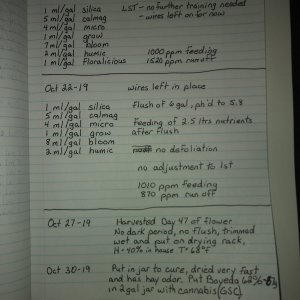 1 ml/gal silica LST - no further training needed
5 ml/gal calmag - wires left on for now
4 ml/gal micro
1 ml/gal grow
7 ml/gal bloom
2 ml/gal humic 1000 ppm feeding
1 ml/gal floralicious 1520 ppm runoff
Oct 22-19 wires left in place
1 ml/gal silica Flush of 6 gal, ph'd to 5.8
5 ml/gal calmag
4 ml/gal micro Feeding of 2.5 ltrs nutrients
1 ml/gal grow after flush
8 ml/gal bloom
2 ml/gal humic no defoliation
no adjustment to lst
1010 ppm feeding
870 ppm run off
Oct 27-19 Harvested Day 47 of flower
No dark period, no flush, trimmed
wet and put on drying rack,
H = 40% in house T = 68°F
Oct 30-19 Put in jar to cure, dried very fast
and has hay odor. Put Boveda 62%
in 2 gal jar with cannabis (GSC)